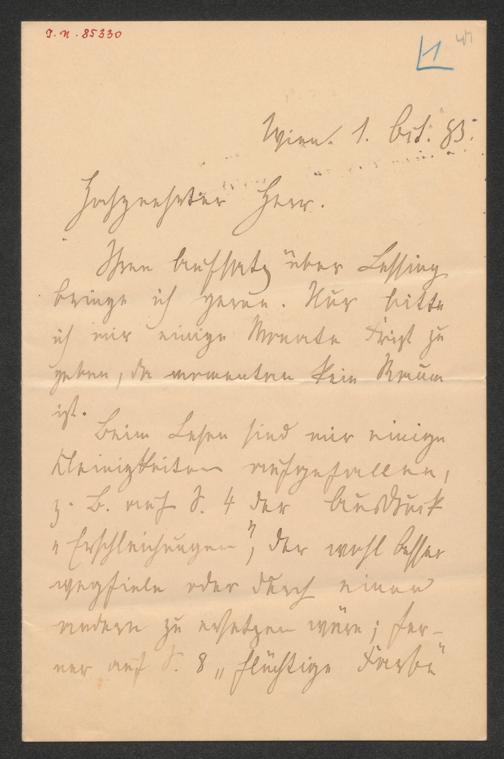 I.N. 85330
Wien. 1. Okt. 85.
Hochgeehrter Herr.
Ihren Aufsatz über Lessing
bringe ich gerne. Nur bitte
ich mir einige Monate Frist zu
geben, da momentan kein Raum
ist.
Beim Lesen sind mir einige
Kleinigkeiten aufgefallen,
z. B. auf S. 4 der Ausdruck
„Erschleichungen", der wohl besser
wegfiele oder durch einen
andern zu ersetzen wäre; fer-
ner auf S. 8 „flüchtige Farbe"